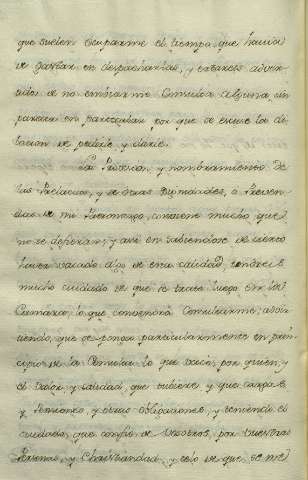 que suelen ocuparme el tiempo que havia
de gastar en despacharlas, y estareis adver-
tidos de no embiarme Consulta alguna, sin
parecer en particular, por que se escuse la di-
lacion de pedirle, y darle.
La Provision y nombramiento de
las Prelacias, y de otras Dignidades, o Preven-
das de mi Patronazgo, conviene mucho que
no se difieran, y asi en sabiendose de cierto
haver vacado algo de esta calidad, tendreis
mucho cuidado de que se trate luego en la
Camara, lo que convendrá Consultarme; advir-
tiendo, que se ponga particularmente en prin-
cipio de la Consulta lo que vacó, por quien, y
el valor y calidad, que tubiere, y que cargas
y Pensiones, y otras obligaciones, y teniendo el
cuidado, que confio de vosotros, por vuestras
Personas, y Christiandad, y celo de que se me